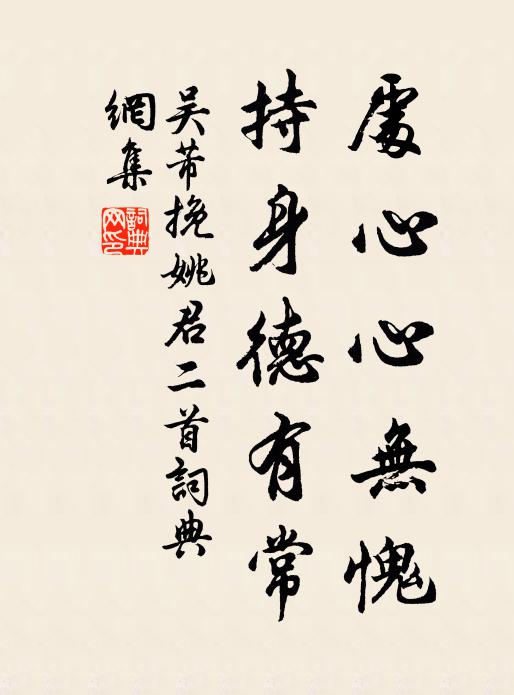 處心心無愧
持身德有常
吴芾挽姚君二首詞典
網集
詞典网印